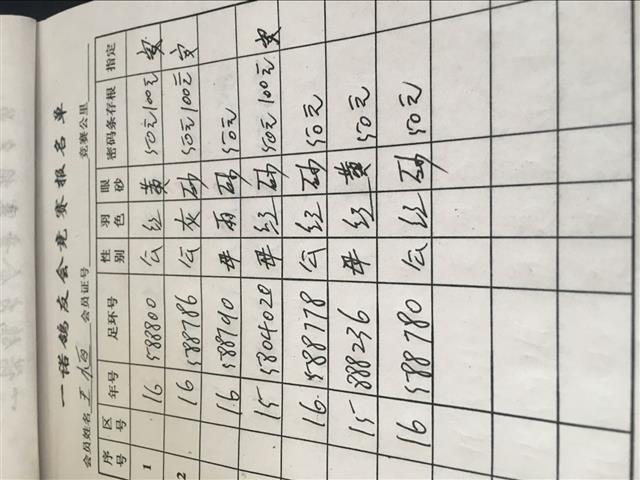 一诺鸽友会竞赛报名单
会员姓名 王 会员证号 竞赛公里
序号 区号 年号 足环号 性别 羽色 眼砂 密码条存根 指定
1 16 588800 公 红 黄 50元100元
2 16 588786 公 灰 砂 50元100元
16 588790 母 雨 砂 50元
15 5804028 母 红 砂 50元100元
16 588778 公 红 砂 50元
15 888236 母 红 黄 50元
16 588780 公 红 砂 50元